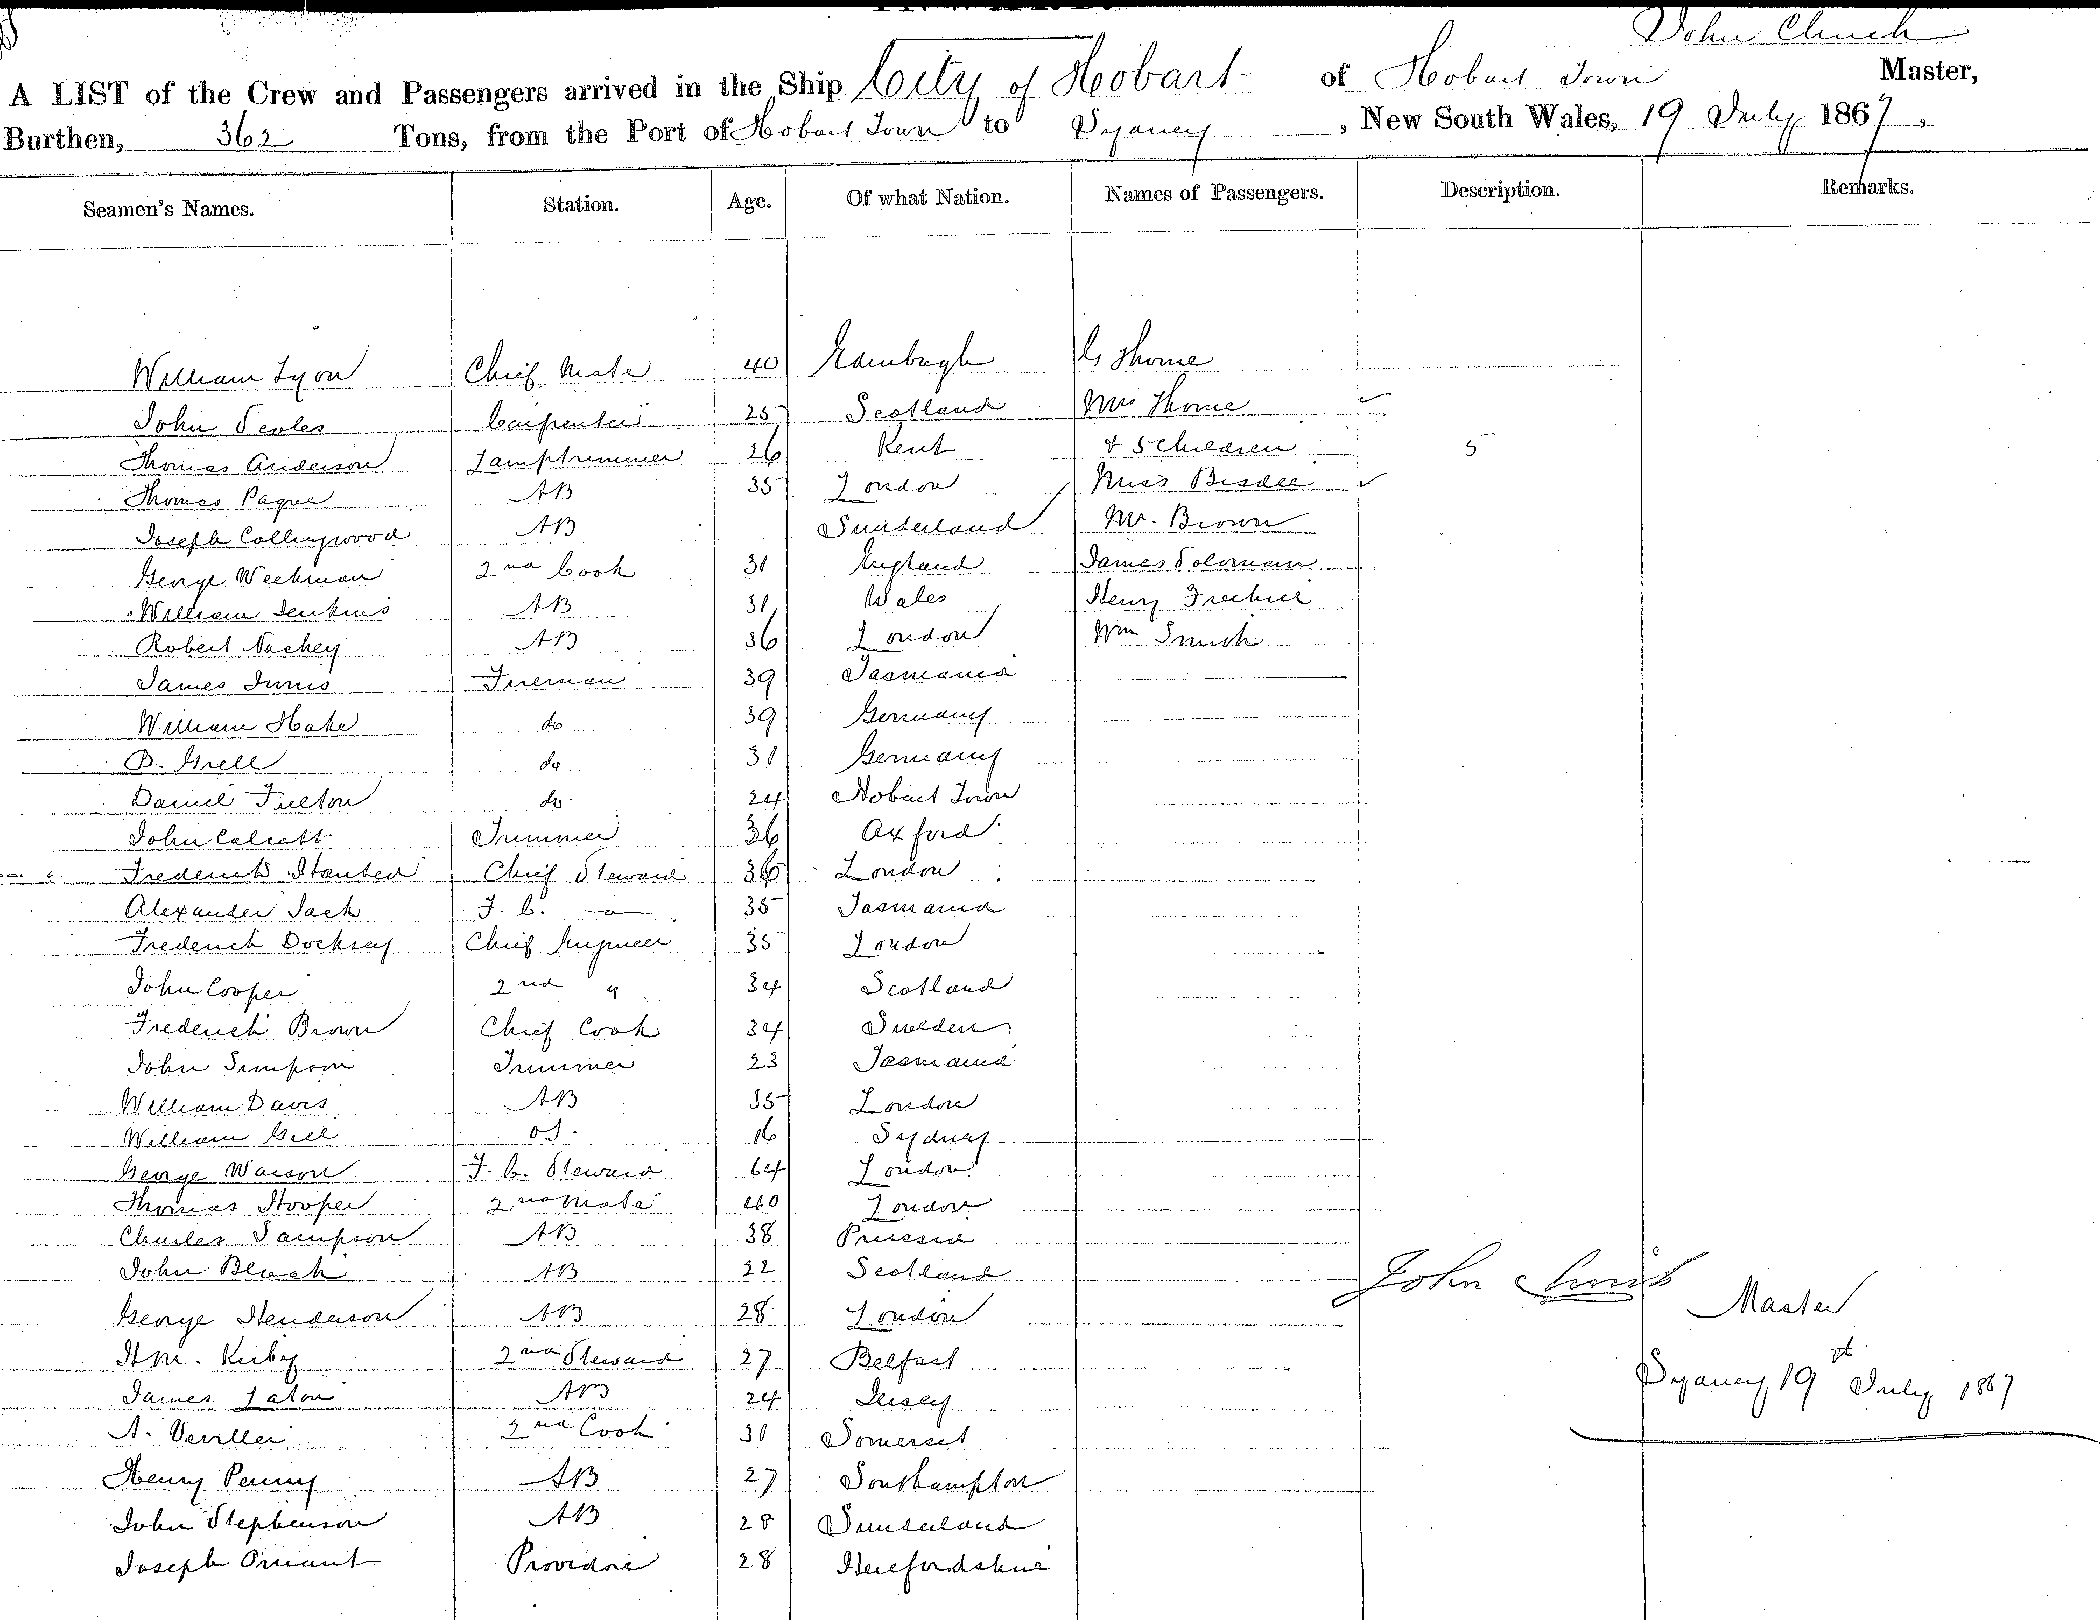 John Clinch
A LIST of the Crew and Passengers arrived in the Ship City of Hobart of Hobart Town Master,
Burthen, 362 Tons, from the Port of Hobart Town to Sydney, New South Wales, 19 July 1867,
Seamen's Names. Station. Age. Of what Nation. Names of Passengers. Description. Remarks.
William Lyon Chief Mate 40 Edinbugh Thorne
John Scoles Carpenter 25 Scotland Mrs Thorne
Thomas Anderson Lamptrimmer 26 Kent & 5 Children 5
Thomas Payne AB 35 London Miss Bisdee
Joseph Collingwood AB Sunderland Mr. Brown
George Weekman 2nd Cook 31 England James Soloman
William Jenkins AB 31 Wales Henry
Robert AB 36 London Wm Smith
James Innis Fireman 39 Tasmania
William Hake do 39 Germany
B. Grell do 31 Germany
Daniel Fulton do 24 Hobart Town
John Calcott Trimmer 36 Oxford
Frederick Chief Steward 36 London
Alexander Jack F. C. 35 Tasmania
Frederick Docksey Chief Engineer 35 London
John Cooper 2nd " 34 Scotland
Frederick Brown Chief Cook 34 Sweden
John Simpson Trimmer 23 Tasmania
William Davis AB 35 London
William Gill OS. 16 Sydney
George Watson F. C. Steward 64 London
Thomas Hooper 2nd Mate 40 London
Charles Sampson AB 38 Prussia
John Black AB 22 Scotland
John Clinch
George Henderson AB 28 London
Master
H M. Kirby 2nd Steward 27 Belfast
Sydney 19th July 1867
James Eaton AB 24 Jersey
A. 2nd Cook 31 Somerset
Henry Penny AB 27 Southampton
John Stephenson AB 28 Sunderland
Joseph Providore 28 Herefordshire